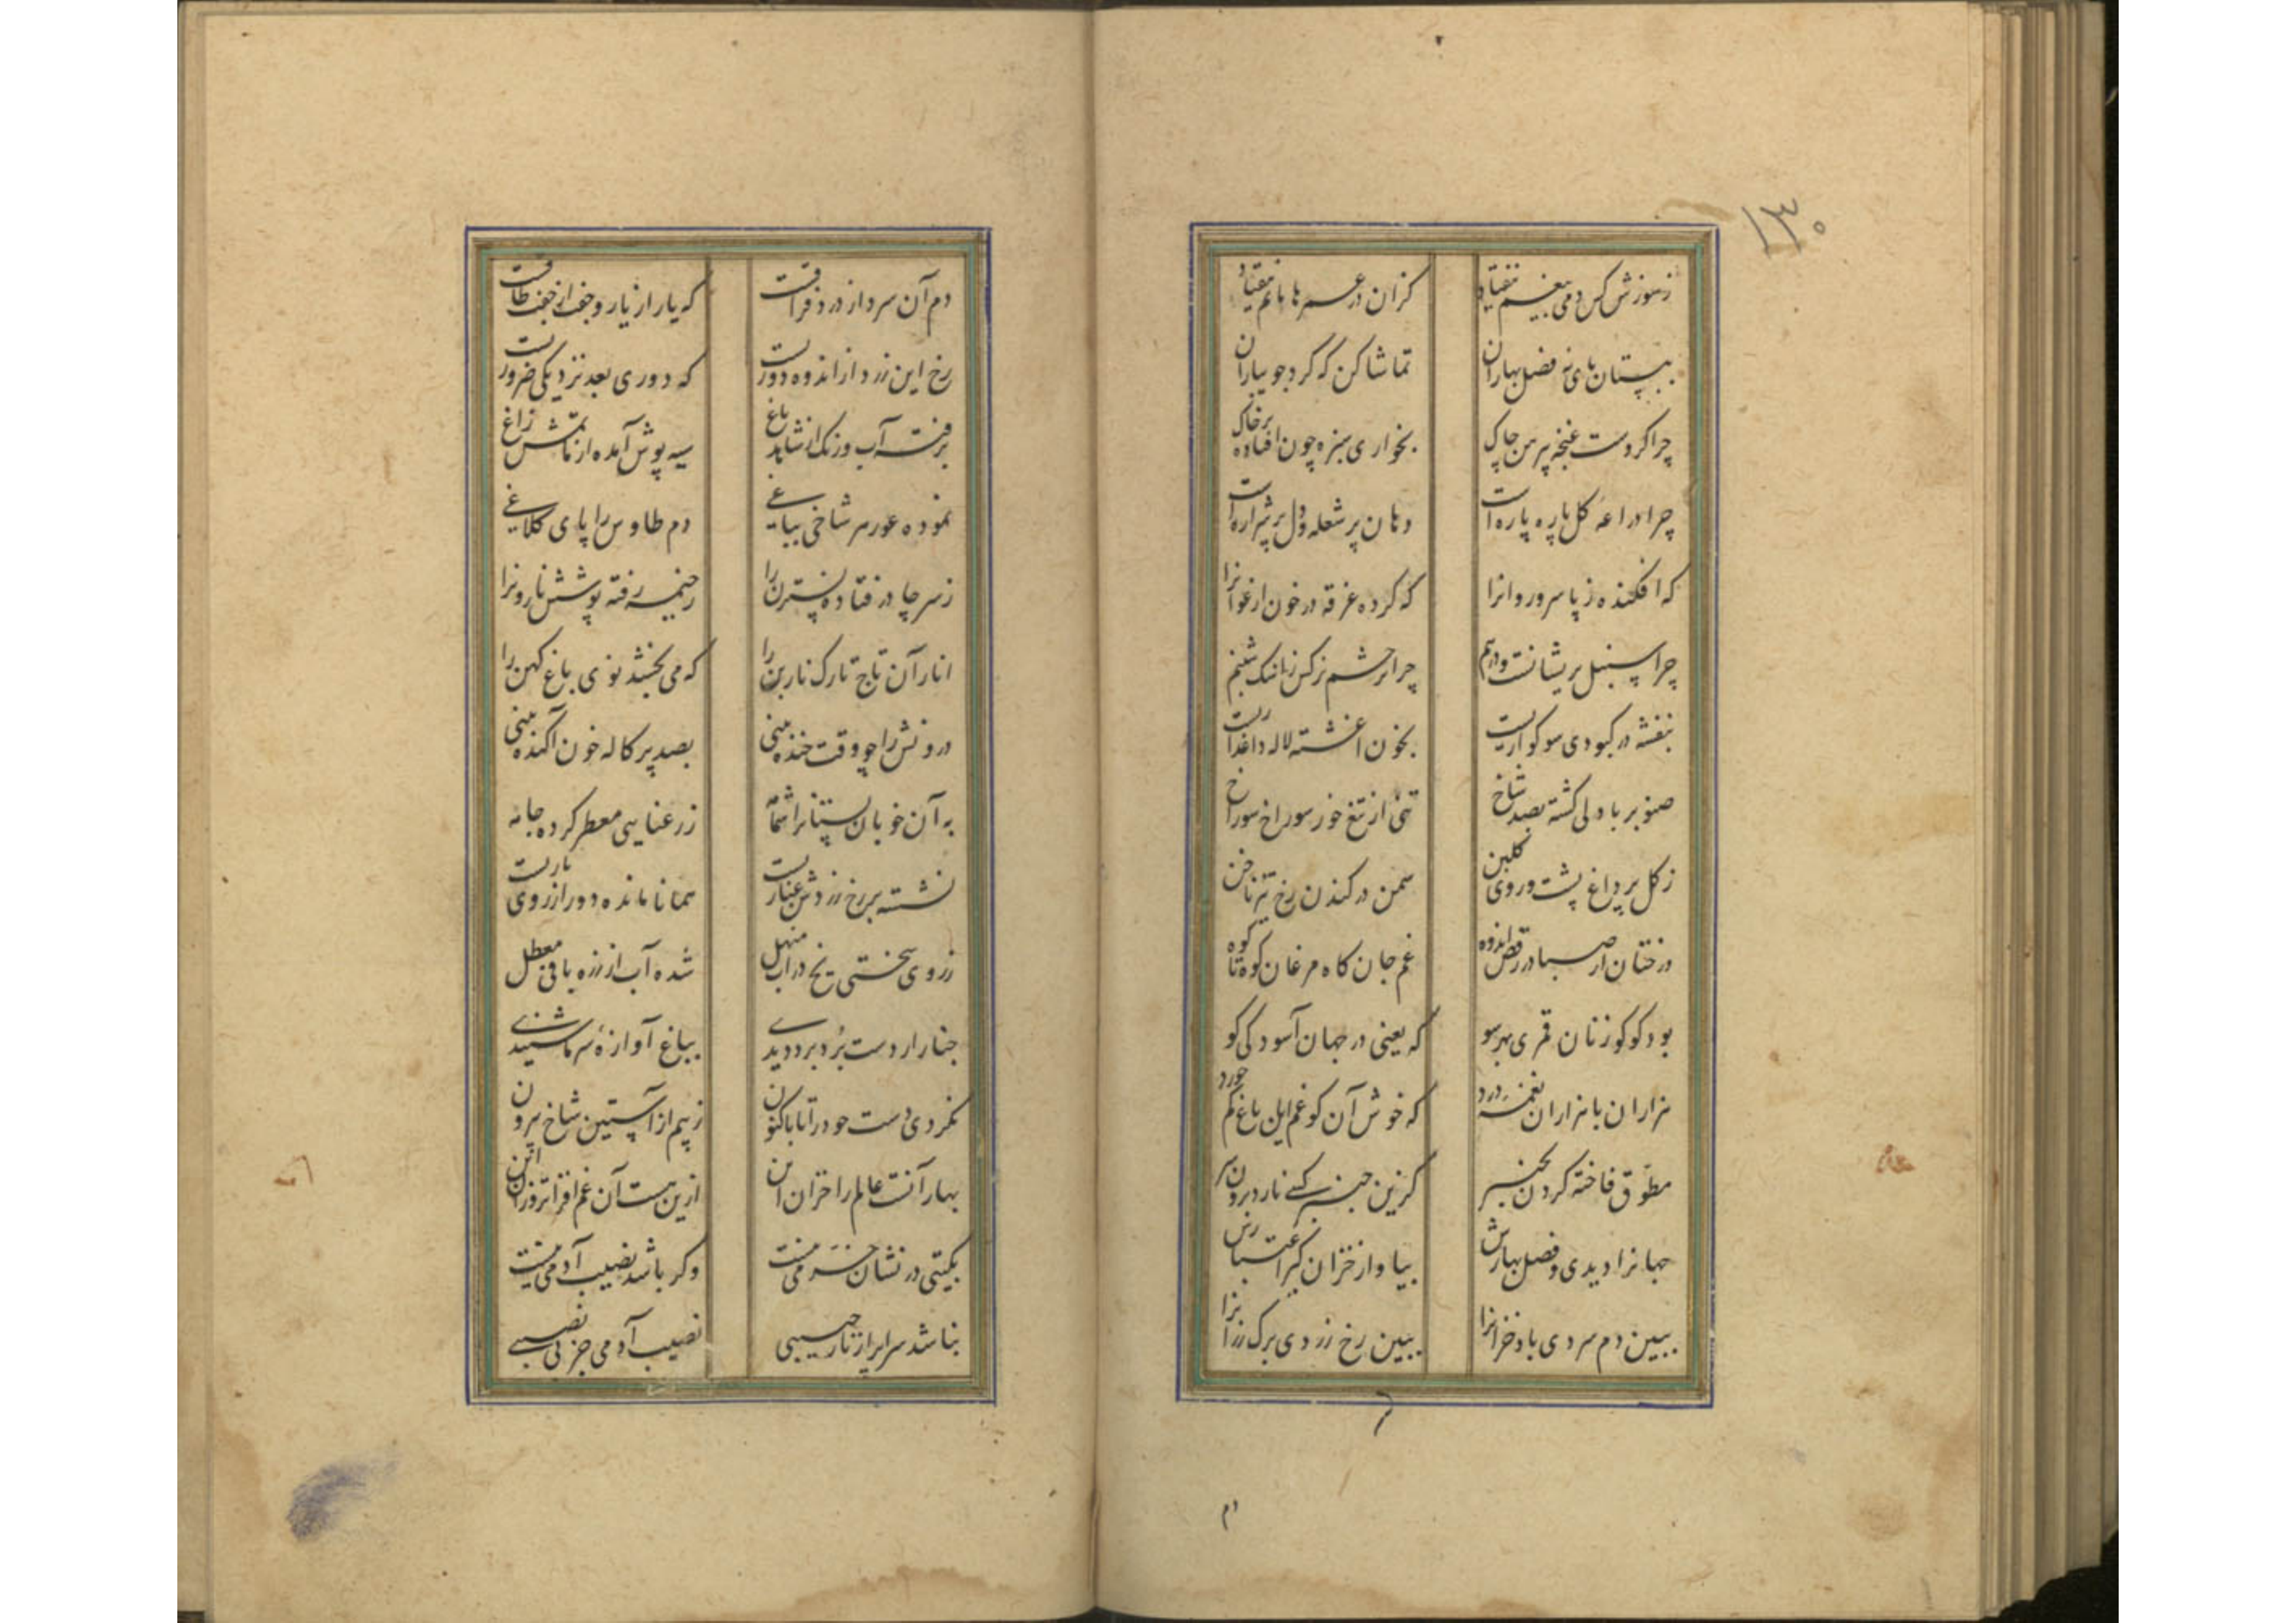 ۱۳۰
ز سوزش کس دمی بیغم نیفتاد
کزان در عمرها ماتم نیفتاد
ببستان پای نه فصل بهاران
تماشا کن که گرد جویباران
چرا کردست غنچه پیرهن چاک
بخواری سبزه چون افتاده بر خاک
چرا دراعه گل پاره پاره است
دهان پر شعله و دل پر شراره است
که افکنده ز پا سرو روانرا
که کرده غرقه در خون ارغوانرا
چرا سنبل پریشانست و درهم
چرا تر چشم نرکس ز اشک شبنم
بنفشه در کبودی سوکواریست
بخون اغشته لاله داغداریست
صنوبر با دلی کشته بصد شاخ
تنی از تیغ خور سوراخ سوراخ
ز کل پر داغ پشت و روی کلبن
سمن در کندن رخ تیز ناخن
درختان از صبا در رقص اندوه
غم جان کاه مرغان کوه تا کوه
بود کوکو زنان قمری بهر سو
که یعنی در جهان آسودکی کو
هزاران با هزاران نغمه درد
که خوش آن کو غم این باغ کم خورد
مطوق فاخته کردن بچنبر
کزین چنبر کسی نارد برون سر
جهانرا دیدی و فصل بهارش
بیا و از خزان کیر اعتبارش
ببین دم سردی باد خزانرا
ببین رخ زردی برک رزانرا
دم
دم آن سرد از درد فراقست
که یار از یار و جفت از جفت طاقست
رخ این زرد از اندوه دوریست
که دوری بعد نزدیکی ضروریست
برفت آب و رنک از شاهد باغ
سیه پوش آمده از ماتمش زاغ
نموده عور سر شاخی بباغی
دم طاوس را پای کلاغی
ز سر چادر فتاده نسترن را
ز خیمه رفته پوشش نارونرا
انار آن تاج تارک نار بن را
که می بخشد نوی باغ کهن را
درونش را چو وقت خنده بینی
بصد پرکاله خون آکنده بینی
به آن خوبان بستانرا شمامه
ز رعنایی معطر کرده جامه
نشسته بر رخ زردش غباریست
همانا مانده دور از روی یاریست
ز روی سختی یخ در آب منهل
شده آب از زره بافی معطل
چنار ار دست برد برد دیدی
بباغ آوازه سرما شنیدی
نکردی دست خود را تا باکنون
ز بیم از آستین شاخ بیرون
بهار آنست عالم را خزان این
ازین هست آن غم افزاتر وز آن این
بکیتی در نشان خرمی نیست
وکر باشد نصیب آدمی نیست
بناشد سرابر از نار سیبی
نصیب آدمی جز بی نصیبی